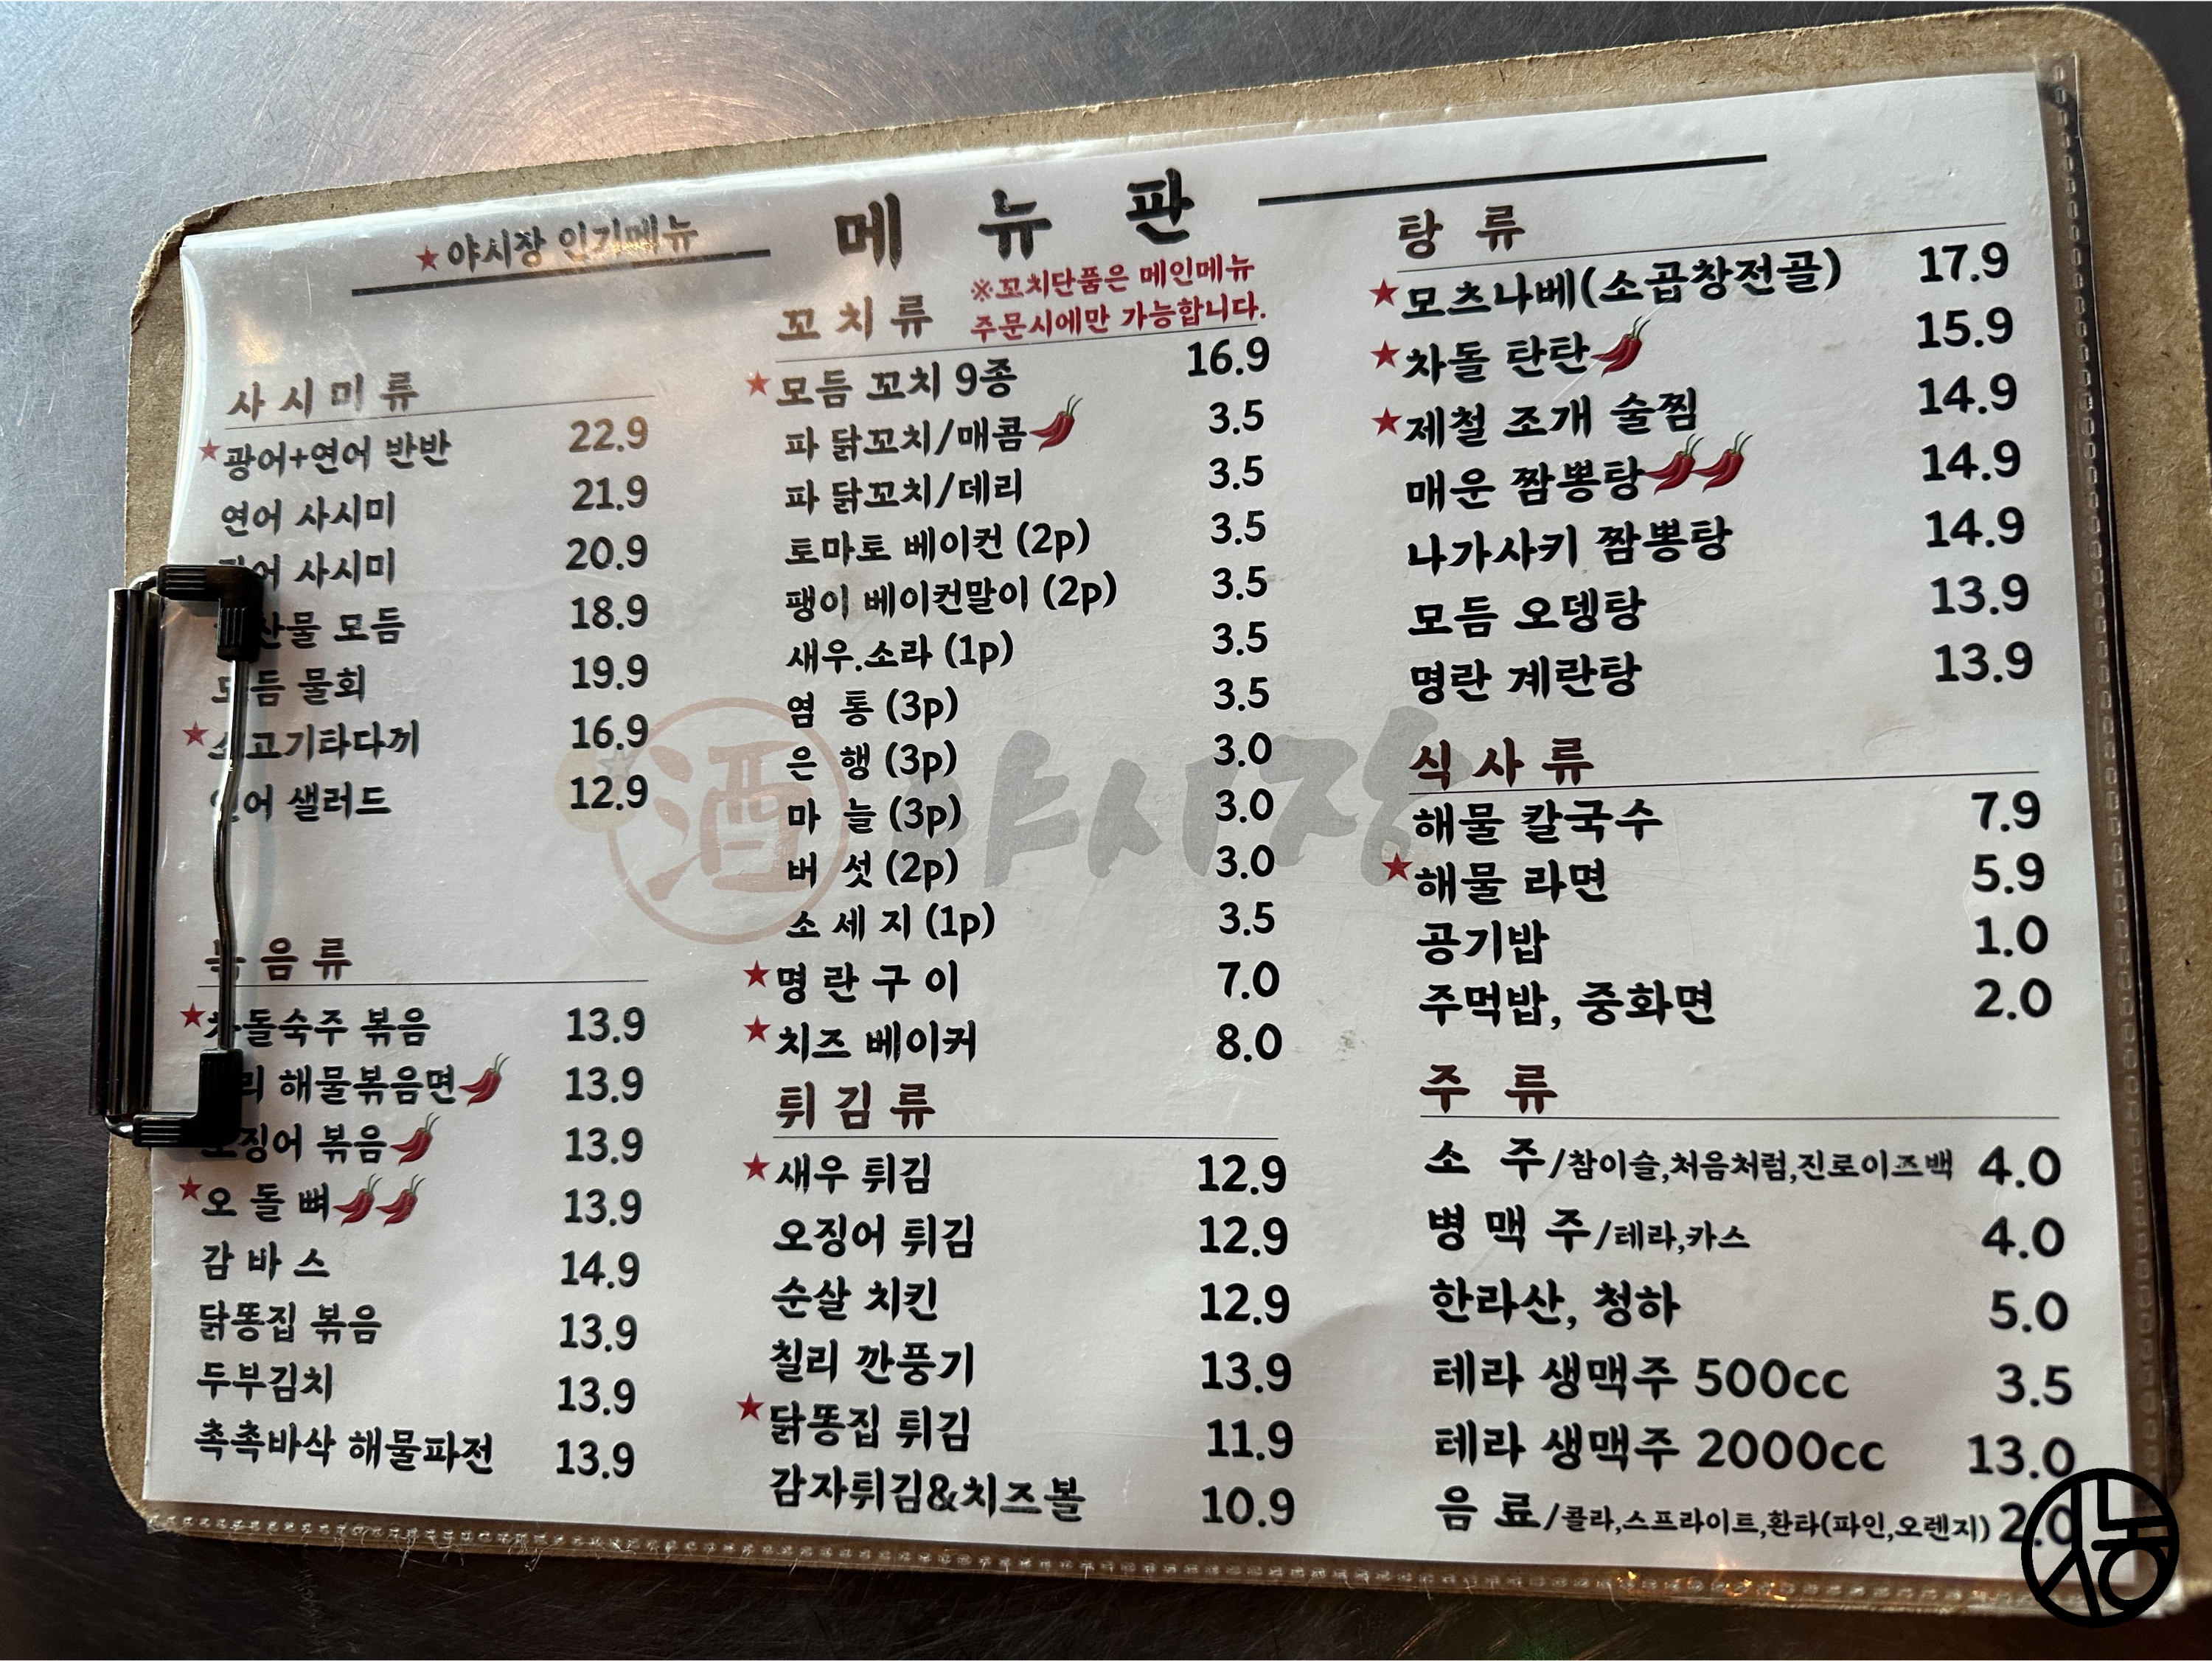 ★야시장 인기메뉴
메 뉴 판
사 시 미 류
★광어+연어 반반 22.9
연어 사시미 21.9
사시미 20.9
모듬 18.9
물회 19.9
★소고기타다끼 16.9
연어 샐러드 12.9
볶 음 류
★차돌숙주 볶음 13.9
해물볶음면 13.9
오징어 볶음 13.9
★오 돌 뼈 13.9
감 바 스 14.9
닭똥집 볶음 13.9
두부김치 13.9
촉촉바삭 해물파전 13.9
꼬 치 류
※꼬치단품은 메인메뉴
주문시에만 가능합니다.
★모듬 꼬치 9종 16.9
파 닭꼬치/매콤 3.5
파 닭꼬치/데리 3.5
토마토 베이컨 (2p) 3.5
팽이 베이컨말이 (2p) 3.5
새우.소라 (1p) 3.5
염 통 (3p) 3.5
은 행 (3p) 3.0
마 늘 (3p) 3.0
버 섯 (2p) 3.0
소 세 지 (1p) 3.5
★명 란 구 이 7.0
★치즈 베이커 8.0
튀 김 류
★새우 튀김 12.9
오징어 튀김 12.9
순살 치킨 12.9
칠리 깐풍기 13.9
★닭똥집 튀김 11.9
감자튀김&치즈볼 10.9
탕 류
★모츠나베(소곱창전골) 17.9
★차돌 탄탄 15.9
★제철 조개 술찜 14.9
매운 짬뽕탕 14.9
나가사키 짬뽕탕 14.9
모듬 오뎅탕 13.9
명란 계란탕 13.9
식 사 류
해물 칼국수 7.9
★해물 라면 5.9
공기밥 1.0
주먹밥, 중화면 2.0
주 류
소 주/참이슬,처음처럼,진로이즈백 4.0
병 맥 주/테라,카스 4.0
한라산, 청하 5.0
테라 생맥주 500cc 3.5
테라 생맥주 2000cc 13.0
음 료/콜라,스프라이트,환타(파인,오렌지) 2.0
酒 야시장